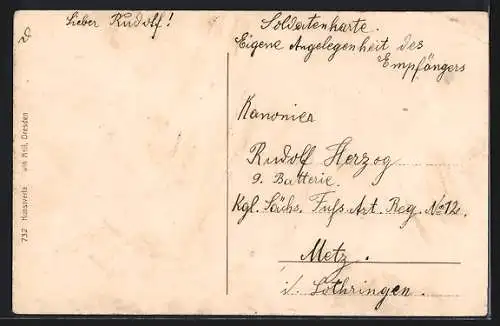 Lieber Rudolf!
Soldatenkarte.
Eigene Angelegenheit des
Empfängers
Kanonier
Rudolf Herzog
9. Batterie.
Kgl. Sächs. Fufs Art. Reg. No 12.
Metz.
i/ Lothringen.
732 Kunstverlag Dresden